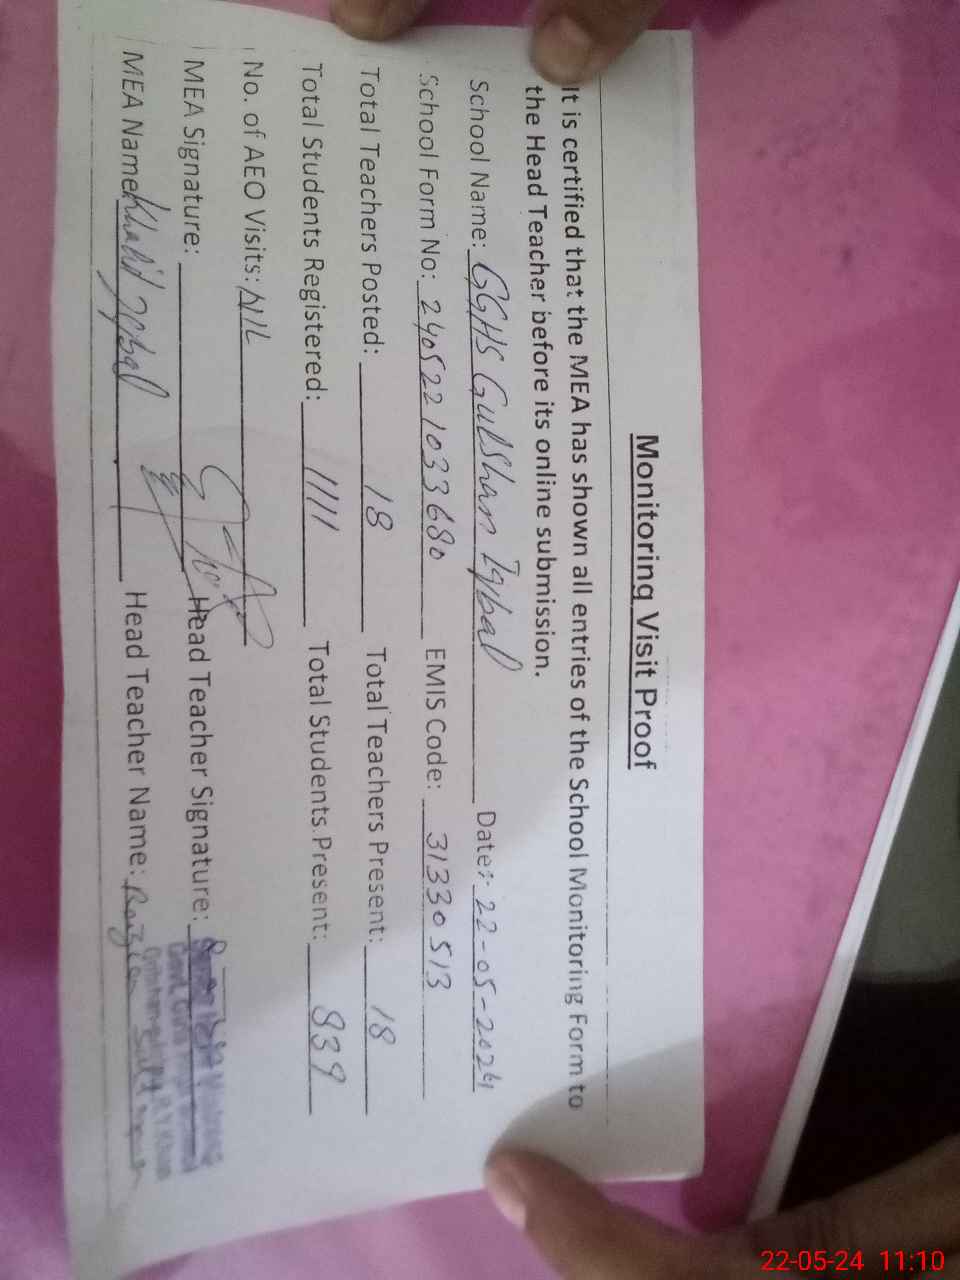 Monitoring Visit Proof
It is certified that the MEA has shown all entries of the School Monitoring Form to
the Head Teacher before its online submission.
School Name: GGHS Gulshan Iqbal Date: 22-05-2024
School Form No: 2405221033680 EMIS Code: 31330513
Total Teachers Posted: 18 Total Teachers Present: 18
Total Students Registered: 1111 Total Students Present: 839
No. of AEO Visits: NIL
MEA Signature: Head Teacher Signature:
MEA Name: Khalid Iqbal Head Teacher Name:
22-05-24 11:10